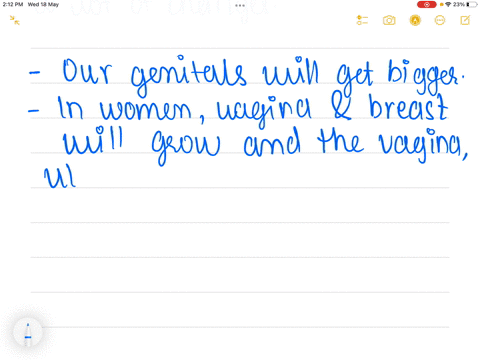 2:12 PM Wed 18 May
23%
- Our genitals will get bigger.
- In women, vagina & breast
will grow and the vagina,